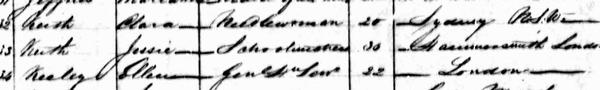 32 Keith Clara Needlewoman 20 Sydney N.S.W.
33 Keith Jessie Schoolmistress 30 Hammersmith London
34 Keeley Ellen Genl Servt 22 London